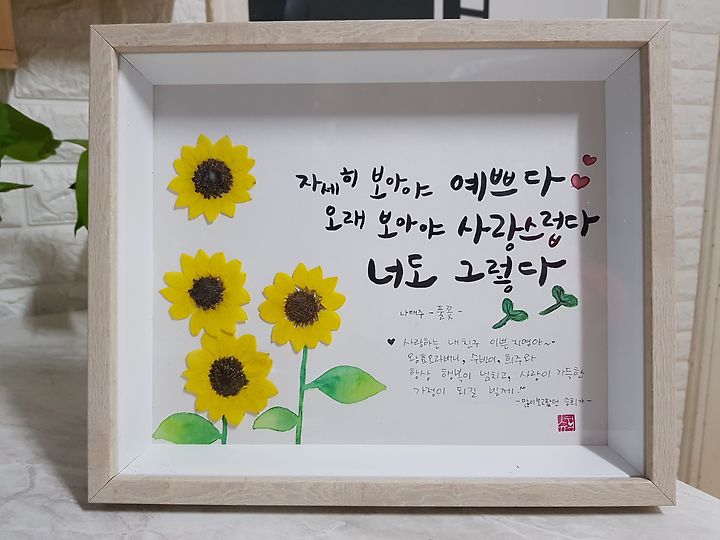 자세히 보아야 예쁘다
오래 보아야 사랑스럽다
너도 그렇다
나태주 - 풀꽃 -
♥ 사랑하는 내 친구 이쁜 지영아~
오라버니, 수빈이, 희주와
항상 행복이 넘치고, 사랑이 가득한
가정이 되길 빌게!!
- 많이 보고팠던 승희가 -